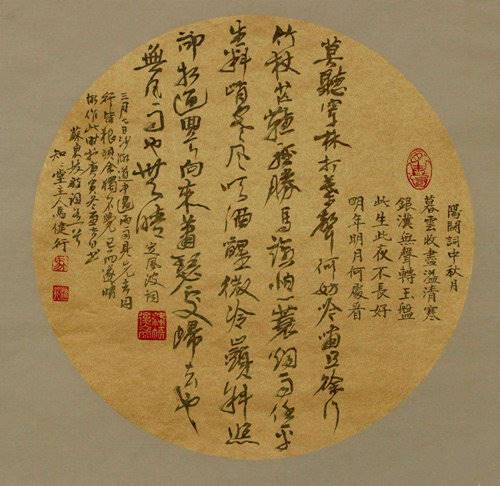 陽關詞中秋月
暮雲收盡溢清寒
銀漢無聲轉玉盤
此生此夜不長好
明年明月何處看
莫聽穿林打葉聲何妨吟嘯且徐行
竹杖芒鞋輕勝馬誰怕一蓑烟雨任平
生料峭春風吹酒醒微冷山頭斜照
卻相迎回首向來蕭瑟處歸去也
無風雨也無晴 定風波詞
三月七日沙湖道中遇雨雨具先去同
行皆狼狽余獨不覺已而遂晴
故作此
蘇東坡詞
知堂主人馮健行